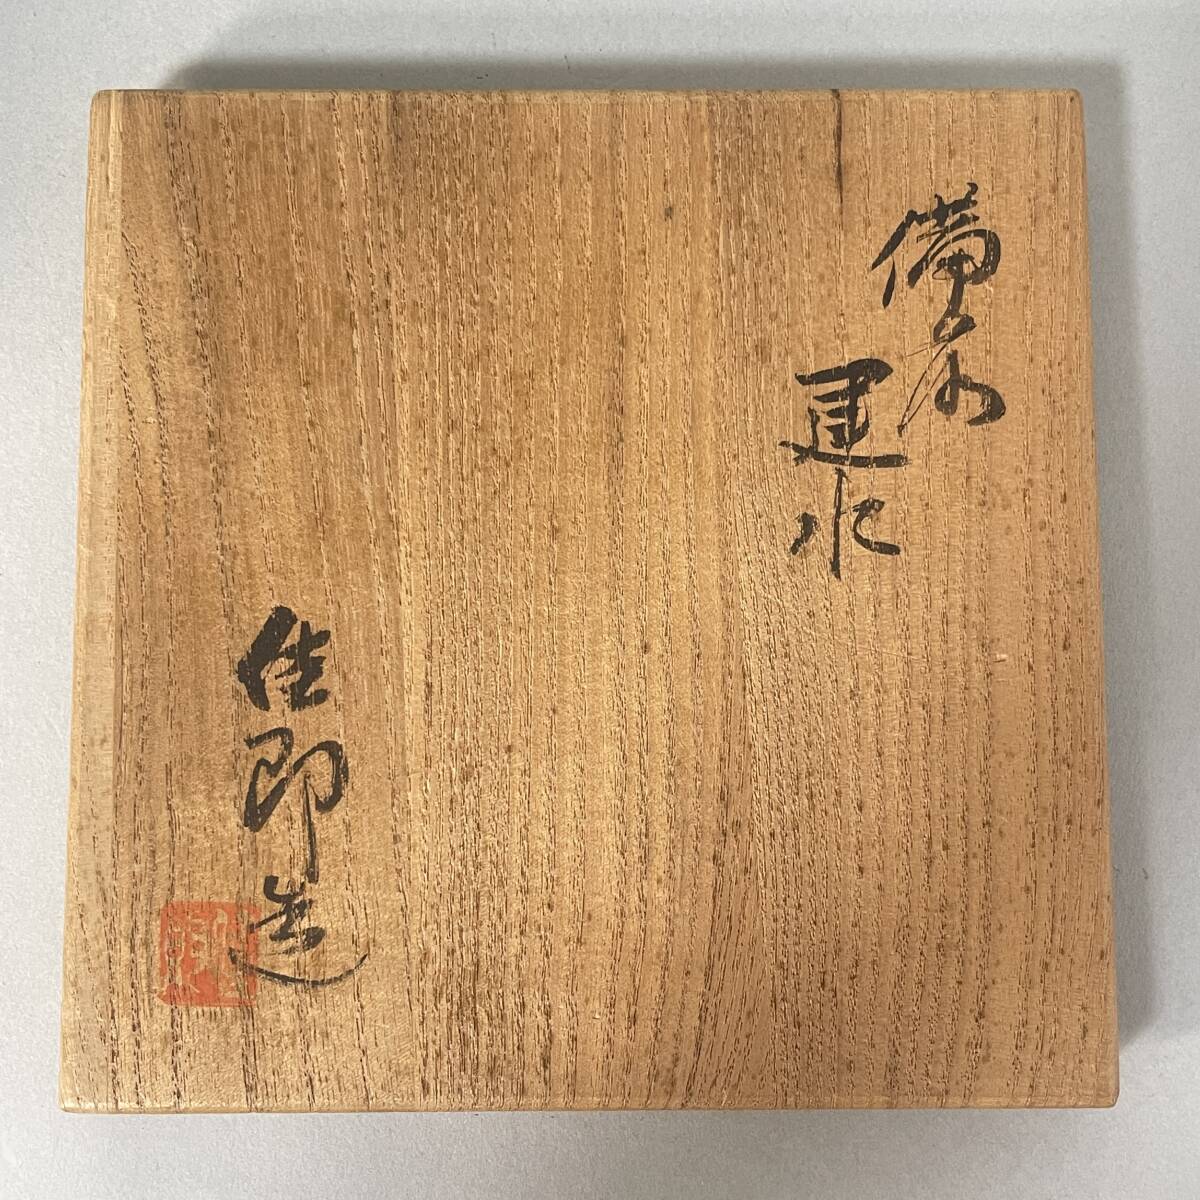 備前
建水
佳郎造